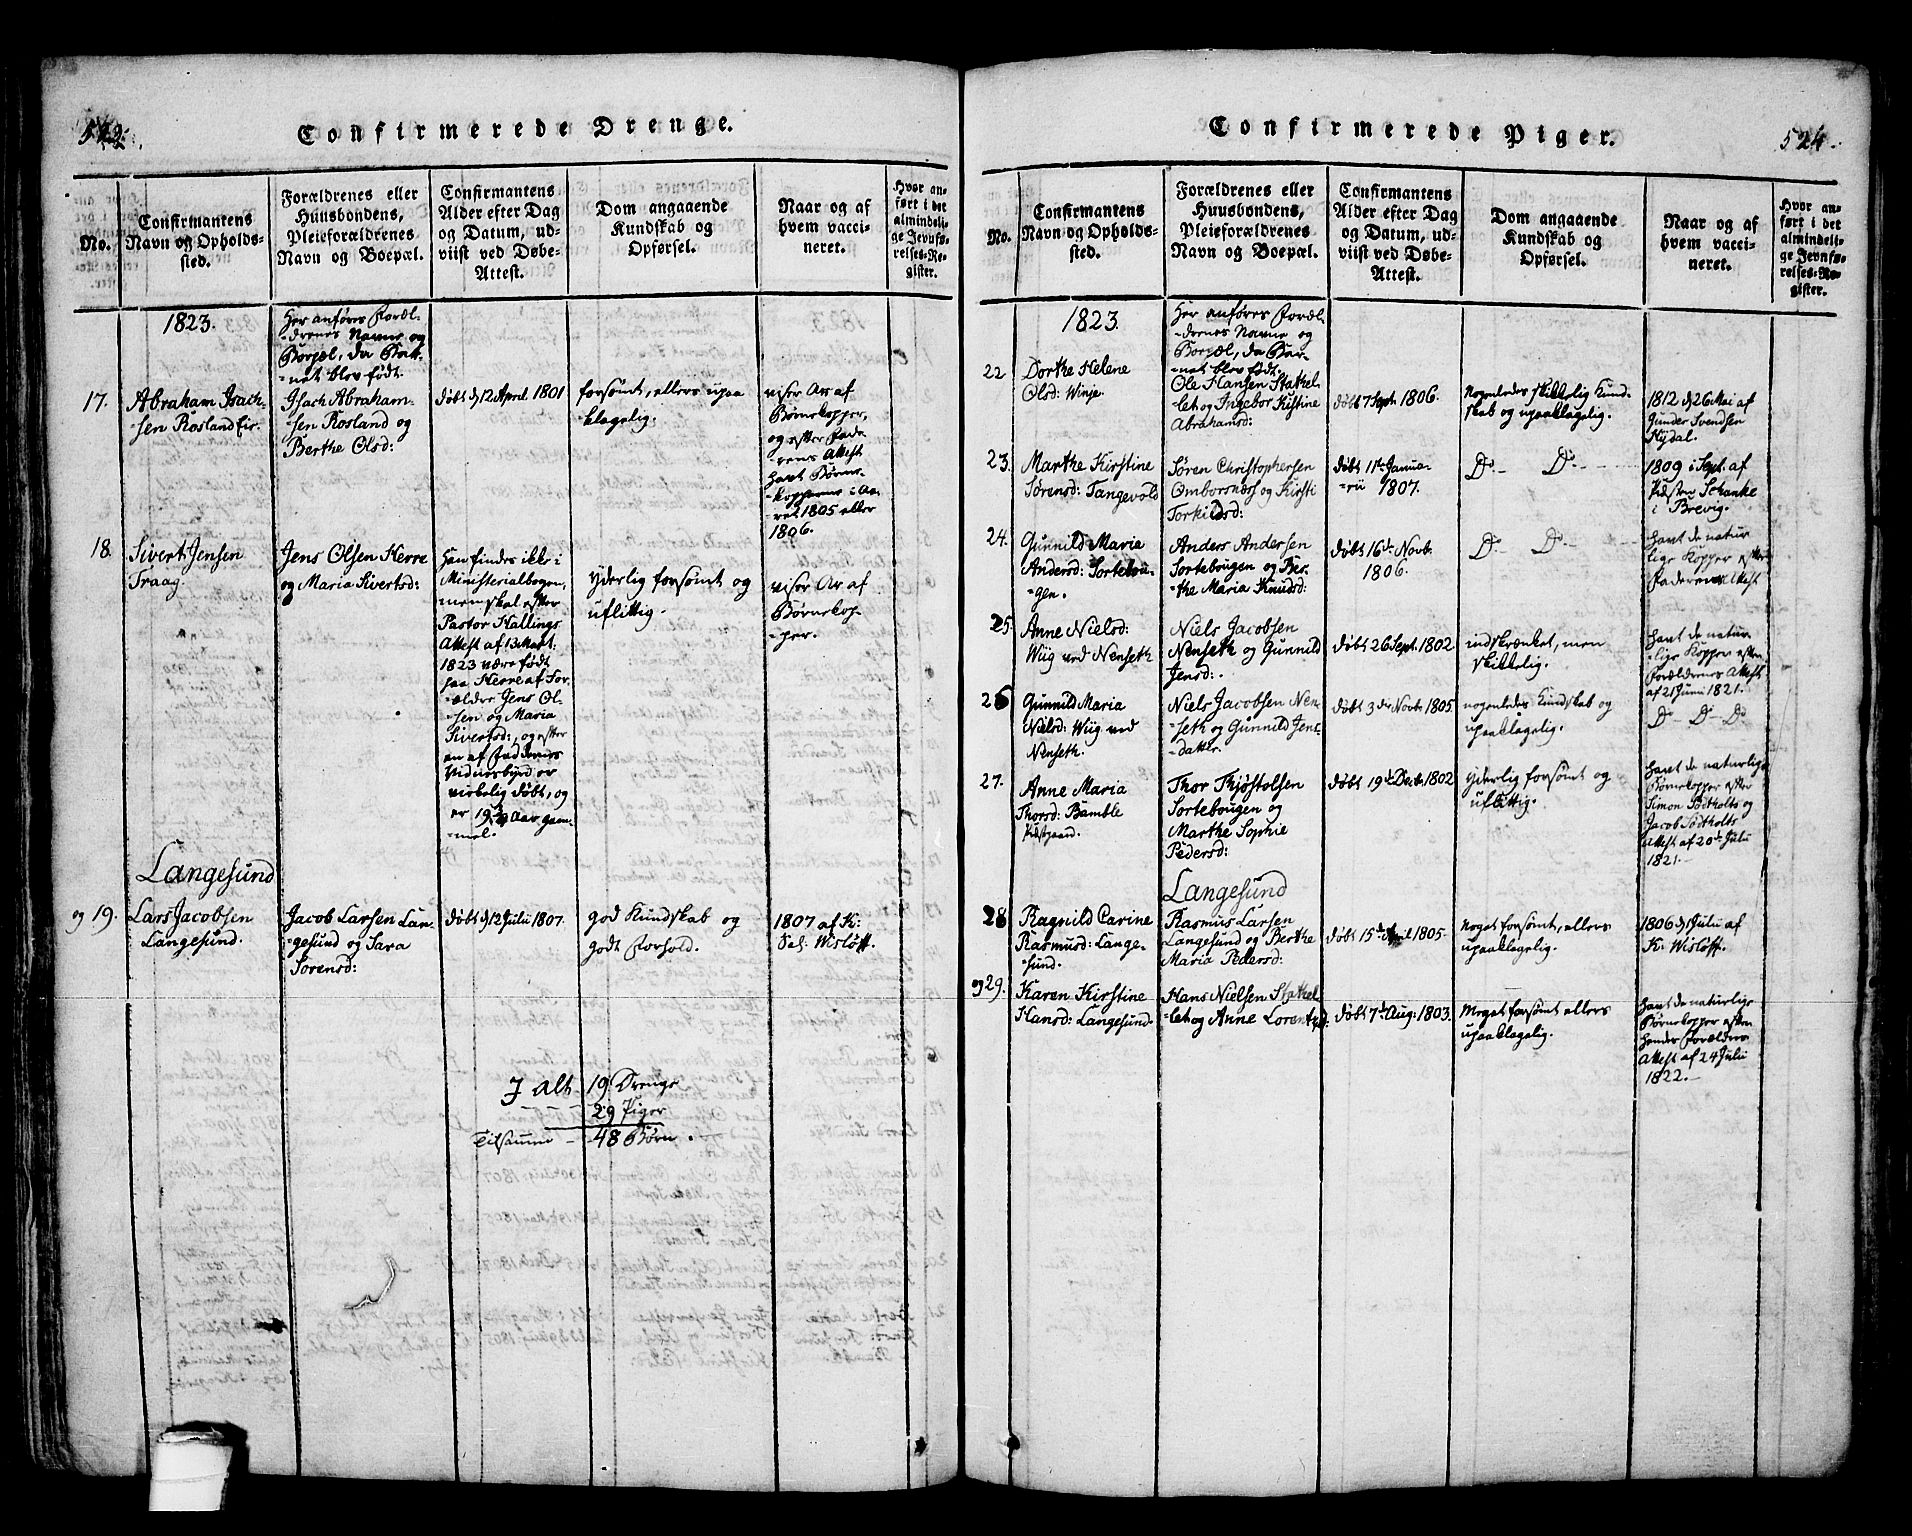 Confirmerede Drenge.
No.
Confirmantens
Navn og Opholds-
sted.
Forældrenes eller
Huusbondens,
Pleieforældrenes
Navn og Boepæl.
Confirmantens
Alder efter Dag
og Datum, ud-
viist ved Døbe-
Attest.
Dom angaaende
Kundskab og
Opførsel.
Naar og af
hvem vacci-
neret.
Hvor an-
ført i det
almindeli-
ge Jevnfø-
relses-Re-
gister.
1823.
Her anføres Foræl-
-drenes Navne og
Boepæl, da Bar-
-net blev født.
17.
Abraham Isach-
-sen Rosland Eir.
Isach Abraham-
-sen Rosland og
Berthe Olsd:
døbt d. 12 April 1801
forsømt, ellers upaa
klagelig.
viser Ar af
Børnekopper,
og efter Fade-
-rens Attest
havt Børne-
-kopperne i Aa-
-ret 1805 eller
1806.
18.
Sivert Jensen
Traag.
Jens Olsen Herre
og Maria Sivertsd:
Han findes ikke i
Ministerialbogen,
men skal efter
Pastor Hallings
Attest af 13 Mart:
1823 være født
paa Herre af For-
-ældre Jens Ol-
-sen og Maria
Sivertsd:, og efter
en af Faderens
Vidnesbyrd er
virkelig døbt, og
er 19 Aar gam-
-mel.
yderlig forsømt og
uflittig.
viser Ar af
Børnekop-
-per.
Langesund
og 19.
Lars Jacobsen
Langesund.
Jacob Larsen Lan-
-gesund og Sara
Sørensd:
døbt d. 12 Julii 1807.
god Kundskab og
godt Forhold.
1807 af K:
Sal: Wisløff.
I alt 19 Drenge
29 Piger
Tilsamme 48 Børn.
Confirmerede Piger.
524.
No.
Confirmantens
Navn og Opholds-
sted.
Forældrenes eller
Huusbondens,
Pleieforældrenes
Navn og Boepæl.
Confirmantens
Alder efter Dag
og Datum, ud-
viist ved Døbe-
Attest.
Dom angaaende
Kundskab og
Opførsel.
Naar og af
hvem vacci-
neret.
Hvor an-
ført i det
almindeli-
ge Jevnfø-
relses-Re-
gister.
1823.
Her anføres Foræl-
-drenes Navne og
Boepæl, da Bar-
-net blev født.
22
Dorthe Helene
Olsd: Winje.
Ole Hansen Stathel-
let og Ingebor Kistine
Abrahamsd:
døbt 7 Sept. 1806.
Nogenledes skikkelig Kund-
skab og upaaklagelig.
1812 d. 26 Mai af
Gunder Svendsen
Nydal.
23.
Marthe Kirstine
Sørensd: Tangevold
Søren Christophersen
Omborsnæss og Kirsti
Torkildsd:
døbt 11te Janua-
-rii 1807.
Do - Do -
1809 i Sept. af
Schanke
i Brevig.
24.
Gunnild Maria
Andersd: Sortebou-
-gen.
Anders Andersen
Sortebougen og Ber-
-the Maria Knudsd:
døbt 16de Novb.
1806.
Do - Do -
havt de natur
lige Kopper efter
Faderens Attest
25.
Anne Nielsd:
Wiig ved Nenseth
Niels Jacobsen
Nenseth og Gunnild
Jensd:
døbt 26 Sept. 1802.
indskrænket, men
skikkelig.
havt de natur
-lige Kopper efter
Forældrenes Attest
af 21 Junii 1821.
26
Gunnild Maria
Nielsd: Wiig ved
Nenseth.
Niels Jacobsen Nen-
-seth og Gunnild Jens
-datter.
døbt 3 die Novb. 1805.
nogenledes Kundskab og
upaaklagelig.
Do - Do - Do
27.
Anne Maria
Thorsd: Bamble
Præstgaard.
Thor Thjøstolsen
Sortebougen og
Marthe Sophie
Pedersd:
døbt 19de Decb. 1802
Yderlig forsømt og
uflittig.
havt de naturlige
Børnekopper efter
Simon Sødtholts og
Jacob Sødtholts
Attest af 20de Julii
1821.
Langesund
28
Ragnild Carine
Rasmusd: Lange-
-sund.
Rasmus Larsen
Langesund og Berthe
Maria Pedersd:
døbt 15de April 1805.
Noget forsømt, ellers
upaaklagelig.
1806 d. Julii af
K: Wisløff.
og 29.
Karen Kirstine
Hansd: Langesund.
Hans Nielsen Stathel
-let og Anne Lorentzd:
døbt 7de Aug: 1803.
Meget forsømt ellers
upaaklagelig.
havt de naturlige
Børnekopper efter
hendes Forældres
Attest af 24 Julii
1822.